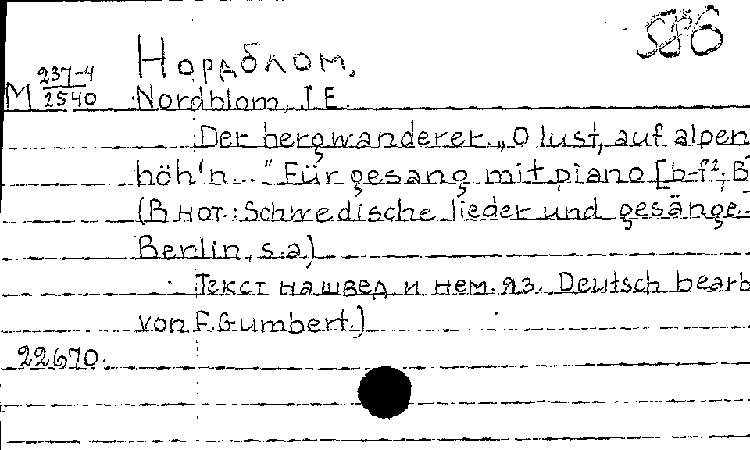 586
Нордблом,
М 237-4/2540
Nordblom, J.E.
Der bergwanderer. „O lust, auf alpen
höh'n..." Für gesang mit piano [b-f²; B
(В нот.: Schwedische lieder und gesänge.
Berlin, s.a.)
Текст на швед. и нем. яз. Deutsch bearb
von F. Gumbert.)
22670.